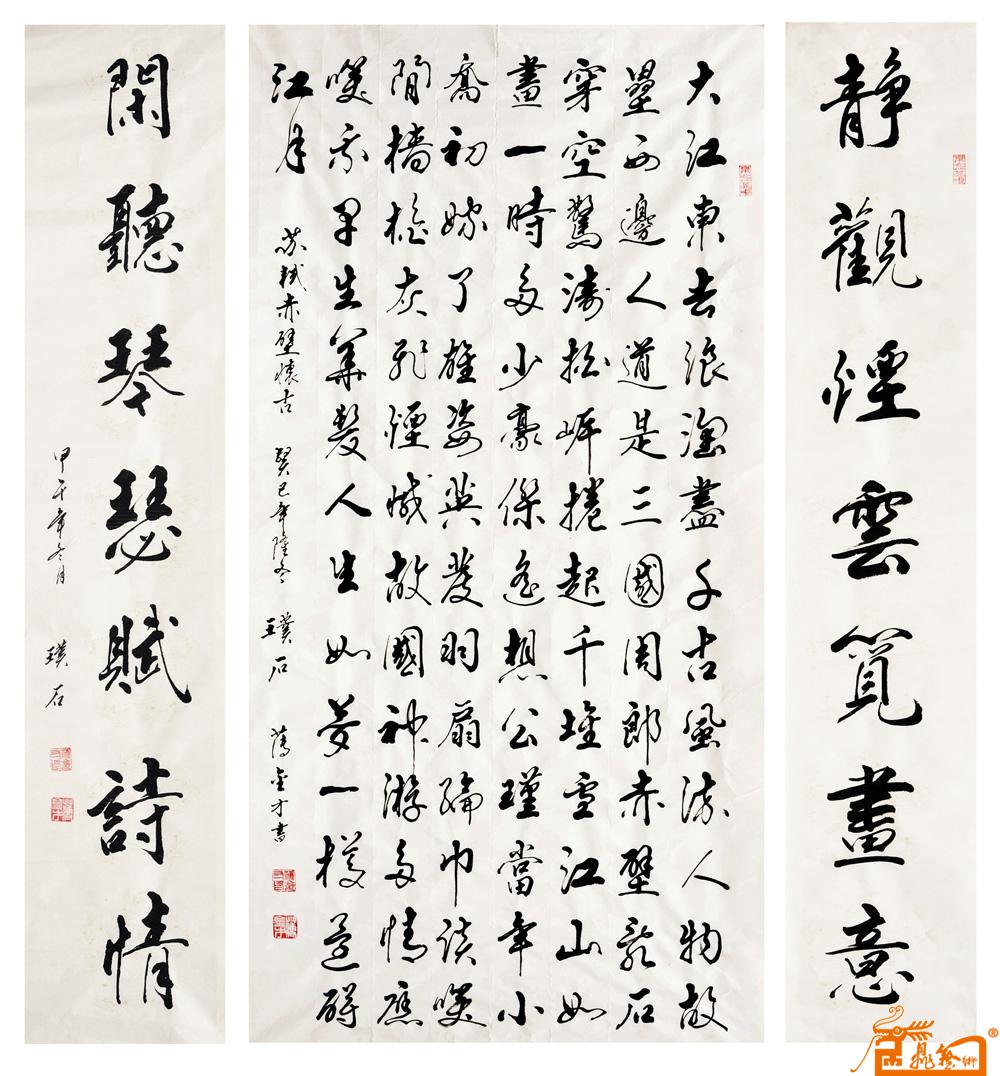 靜觀煙雲覓畫意
大江東去浪淘盡千古風流人物故
壘西邊人道是三國周郎赤壁亂石
穿空驚濤拍岸捲起千堆雪江山如
畫一時多少豪傑遙想公瑾當年小
喬初嫁了雄姿英發羽扇綸巾談笑
間檣櫓灰飛煙滅故國神游多情應
笑我早生華髮人生如夢一樽還酹
江月 蘇軾赤壁懷古 癸巳年隆冬 璞石 薄金才書
閑聽琴瑟賦詩情
甲午年冬月 璞石